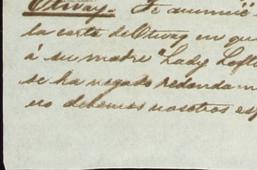 Otway. Te anuncié
la carta de Otway en qu
á su madre Lady Loft
se ha negado redondam
no debemos nosotros esp